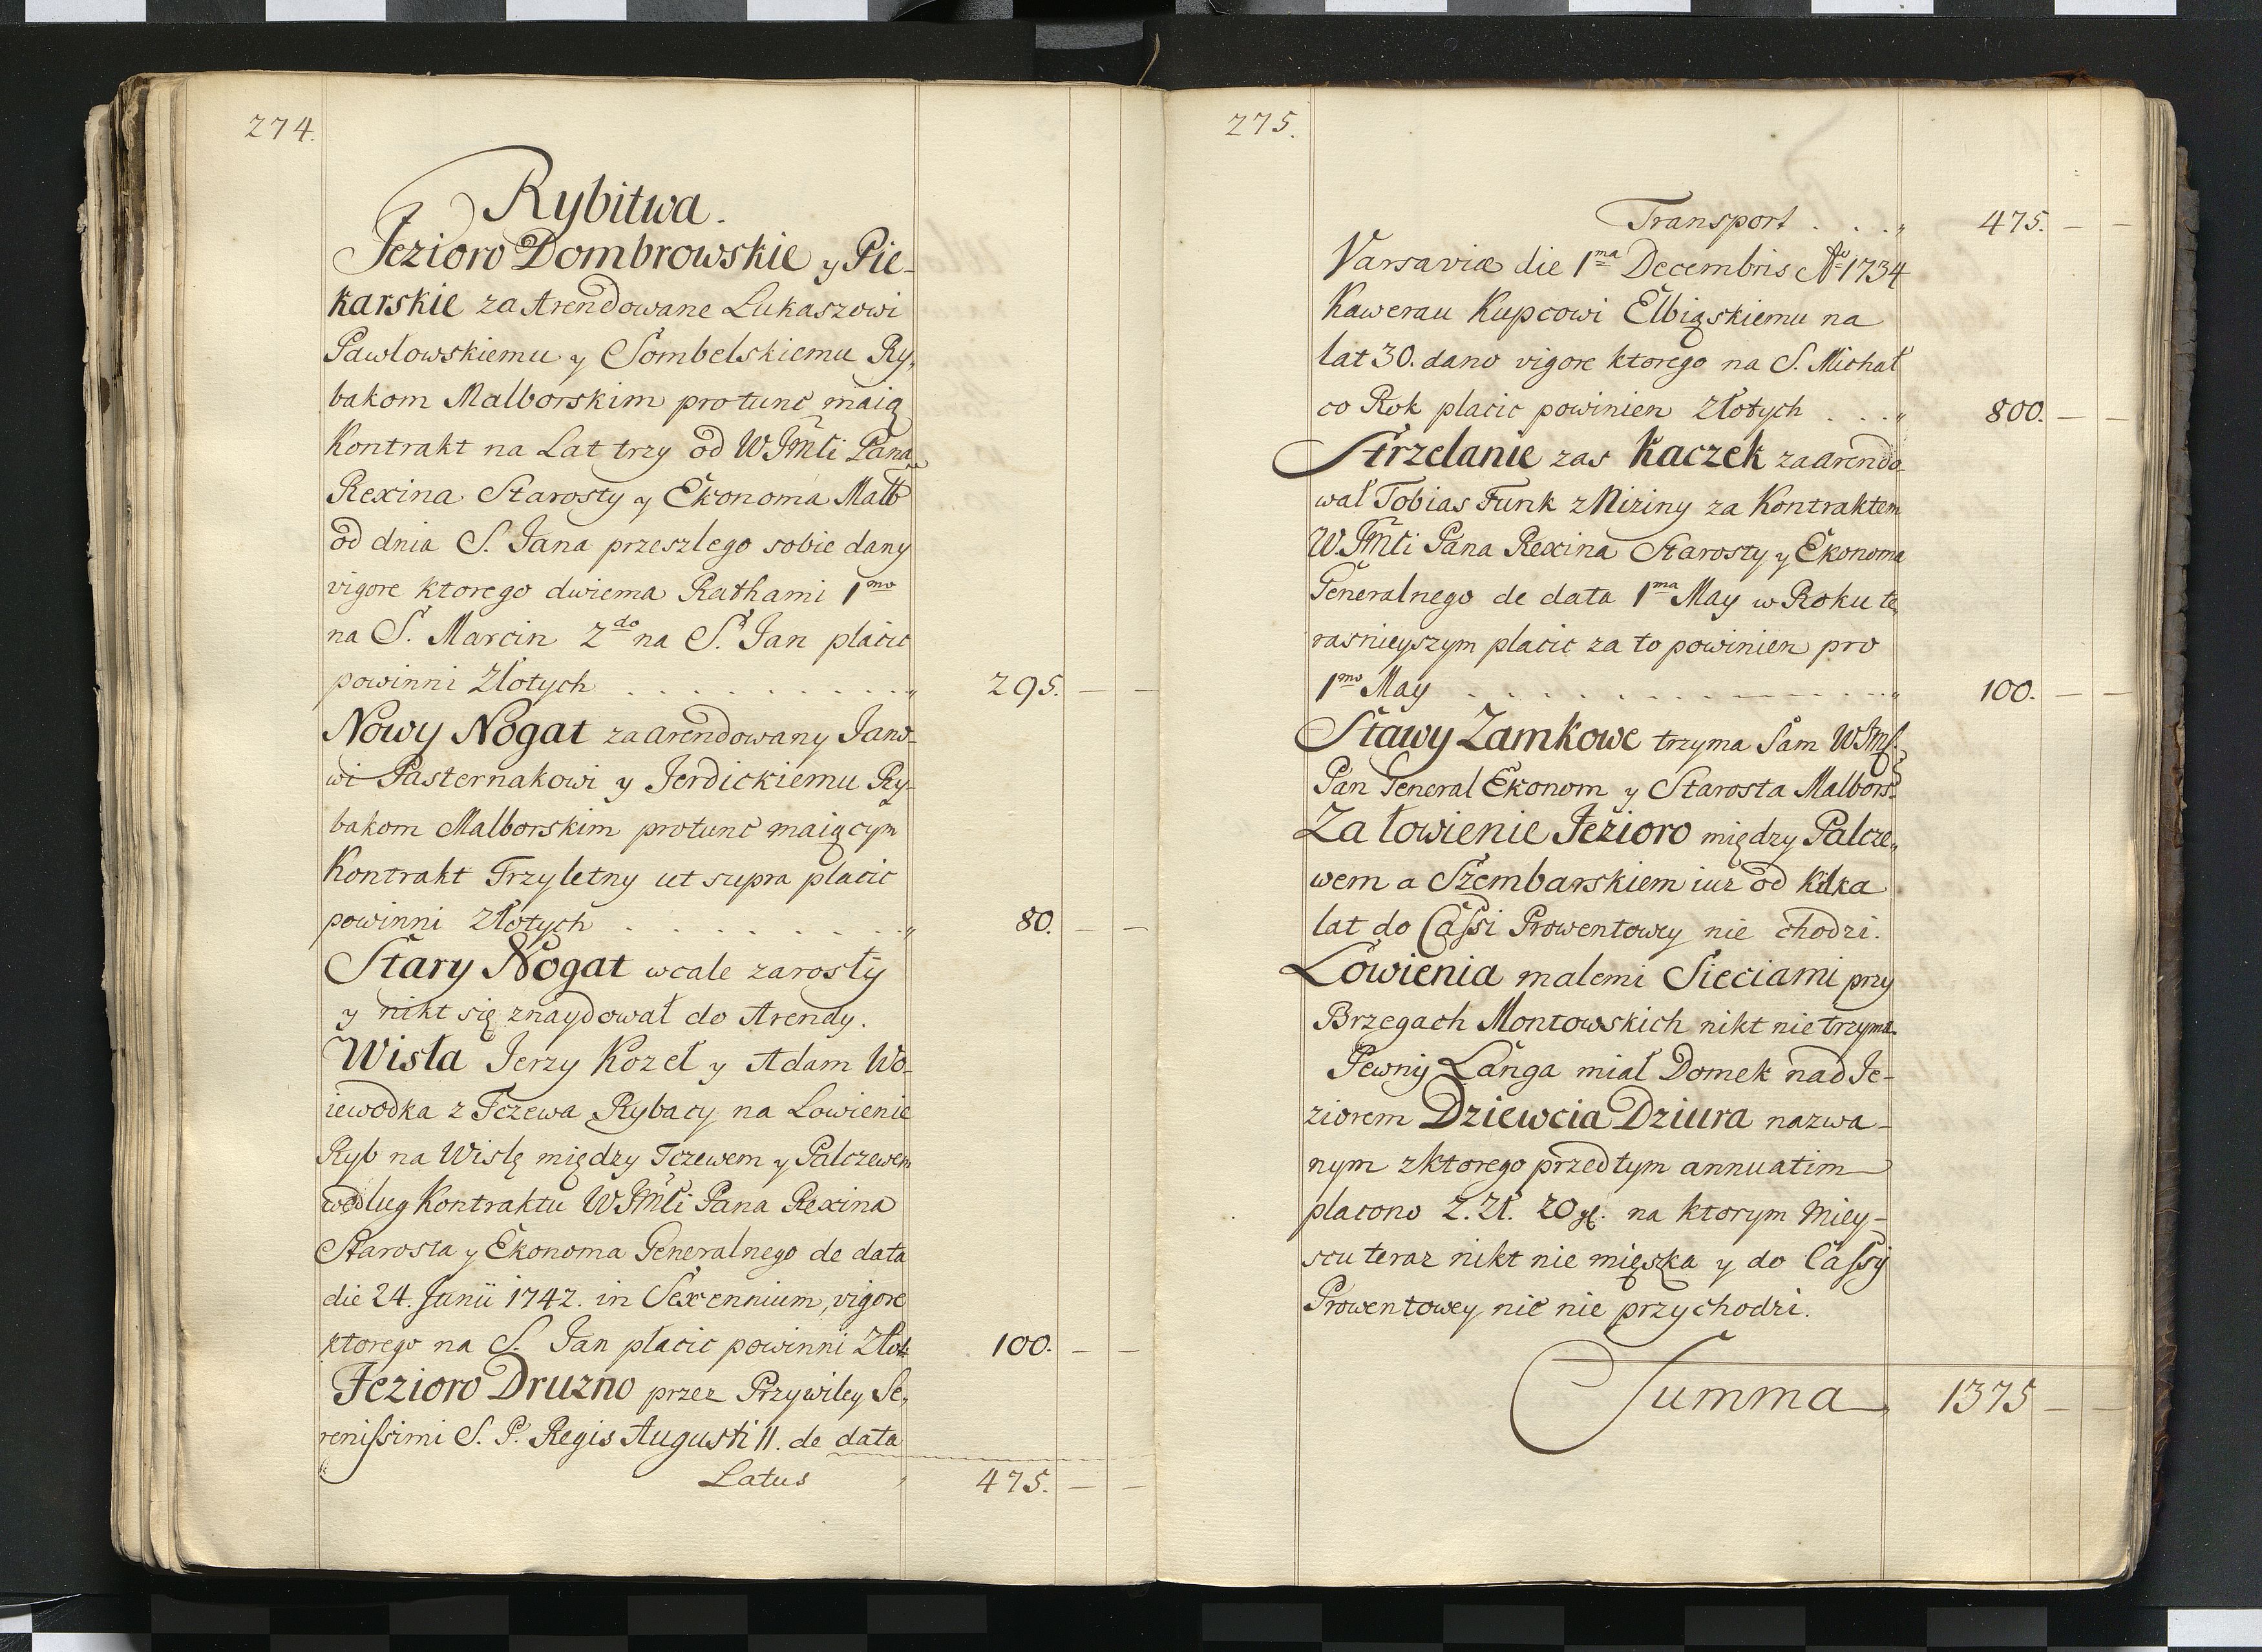 274.
Rybitwa.
Jezioro Dombrowskie y Pie-
karskie za Arendowane Lukaszowi
Pawlowskiemu y Sombelskiemu Ry,
bakom Malborskim protunc maią
Kontrakt na Lat trzy od WJMCi Pana
Rexina Starosty y Ekonoma Malb
od dnia S. Jana przeszlego sobie dany
vigore ktorego dwiema Rathami 1mo
na S. Marcin 2do na S. Jan placic
powinni Złotych . . . . . . . . . . . " 295. — —
Nowy Nogat zaarendowany Jano-
wi Pasternakowi y Jerdickiemu Ry-
bakom Malborskim protunc maiącym
Kontrakt Trzyletny ut supra placic
powinni Złotych . . . . . . . . . " 80. — —
Stary Nogat wcale zarosły
y nikt się znaydował do Arendy.
Wisła Jerzy Kozeł y Adam Wo-
iewodka z Tczewa Rybacy na Lowienie
Ryb na Wislę między Tczewem y Palczewem
wedlug Kontraktu WJMCi Pana Rexina
Starosta y Ekonoma Generalnego de data
die 24. Junii 1742. in Sexennium, vigore
ktorego na S. Jan płacic powinni Złot: 100. — —
Jezioro Druzno przez Przywiley Se,
renissimi S. P. Regis Augusti II. de data
Latus " 475. — —
275.
Transport . . . " 475. — —
Varsaviæ die 1ma Decembris Ao 1734
Kawerau Kupcowi Elbiąskiemu na
lat 30. dano vigore ktorego na S. Michał
co Rok placic powinien Złotych . . . " 800. — —
Strzelanie zas Kaczek zaarendo-
wał Tobias Funk z Niziny za Kontraktem
W.JMCi Pana Rexina Starosty y Ekonoma
Generalnego de data 1ma May w Roku te,
rasnieyszym placic za to powinien pro
1mo May . . . . . . . . . . . . " 100. — —
Stawy Zamkowe trzyma Sam WJMs.
Pan General Ekonom y Starosta Malbors.
Za łowienie Jezioro między Palcze,,
wem a Szembarskiem iuz od kilka
lat do Cassi Prowentowey nie chodzi.
Lowienia malemi Sieciami przy
Brzegach Montowskich nikt nie trzyma.
Pewny Langa miał Domek nad Je-
ziorem Dziewcia Dziura nazwa-
nym zktorego przedtym annuatim
placono 2. Zł. 20 gl. na ktorym Miey-
scu teraz nikt nie mięszka y do Cassy
Prowentowey nic nie przychodzi.
Summa " 1375 — —